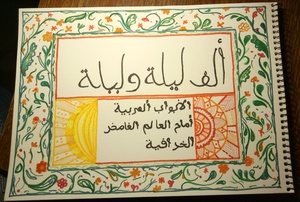 ألف ليلة وليلة
الأبواب العربية
أمام العالم الغامض
الخرافية